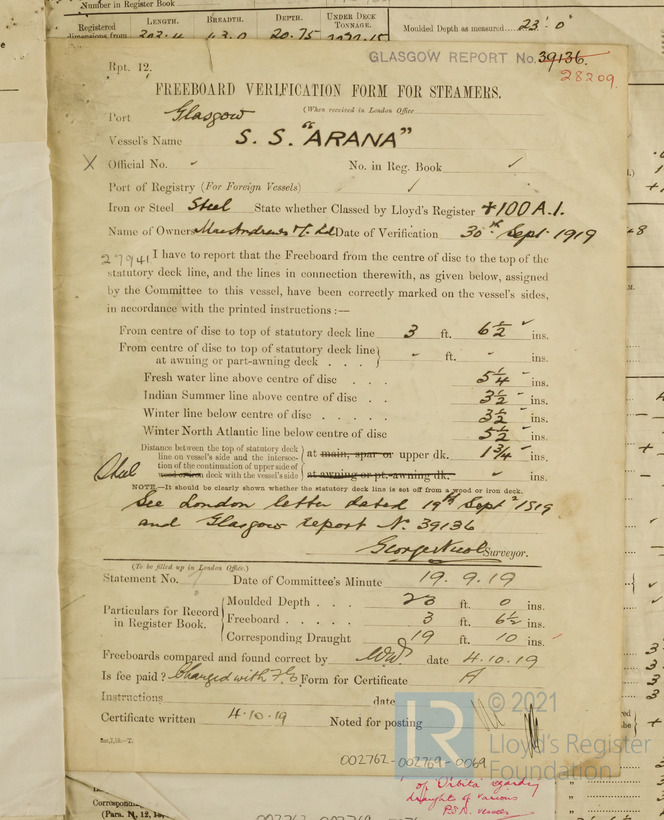 Number in Register Book
Registered dimensions from
LENGTH. BREADTH. DEPTH. UNDER DECK TONNAGE.
20.75
Moulded Depth as measured 23' 0"
GLASGOW REPORT No. 39136.
28209.
Rpt. 12.
FREEBOARD VERIFICATION FORM FOR STEAMERS.
(When received in London Office
Port Glasgow
Vessel's Name S. S. "ARANA"
X Official No. ✓ No. in Reg. Book ✓
Port of Registry (For Foreign Vessels) ✓
Iron or Steel Steel State whether Classed by Lloyd's Register +100 A.1.
Name of Owners MacAndrews & Co Ld Date of Verification 30th Sept. 1919
27941 I have to report that the Freeboard from the centre of disc to the top of the
statutory deck line, and the lines in connection therewith, as given below, assigned
by the Committee to this vessel, have been correctly marked on the vessel's sides,
in accordance with the printed instructions :—
From centre of disc to top of statutory deck line 3 ft. 6½ ins.
From centre of disc to top of statutory deck line
at awning or part-awning deck . . . ft. ins.
Fresh water line above centre of disc . . . 5¼ ins.
Indian Summer line above centre of disc . . 3½ ins.
Winter line below centre of disc . . . . . 3½ ins.
Winter North Atlantic line below centre of disc 5½ ins.
Distance between the top of statutory deck
line on vessel's side and the intersec-
tion of the continuation of upper side of
Steel wood or iron deck with the vessel's side
at main, spar or upper dk. 1¾ ins.
at awning or pt.-awning dk. ins.
NOTE.—It should be clearly shown whether the statutory deck line is set off from a wood or iron deck.
See London letter dated 19th Sept 1919
and Glasgow report No. 39136
George Nicol Surveyor.
(To be filled up in London Office.)
Statement No. Date of Committee's Minute 19. 9. 19
Particulars for Record
in Register Book.
Moulded Depth . . . 23 ft. 0 ins.
Freeboard . . . . . 3 ft. 6½ ins.
Corresponding Draught 19 ft. 10 ins.
Freeboards compared and found correct by date 4.10.19
Is fee paid? Charged with F.E. Form for Certificate A
Instructions date
Certificate written 4.10.19 Noted for posting
002762-002769-0069
LR
© 2021
Lloyd's Register
Foundation
of Orbita regarding
draughts of various
P.S.N. vessels
Corresponding
(Para. N. 12, 13,